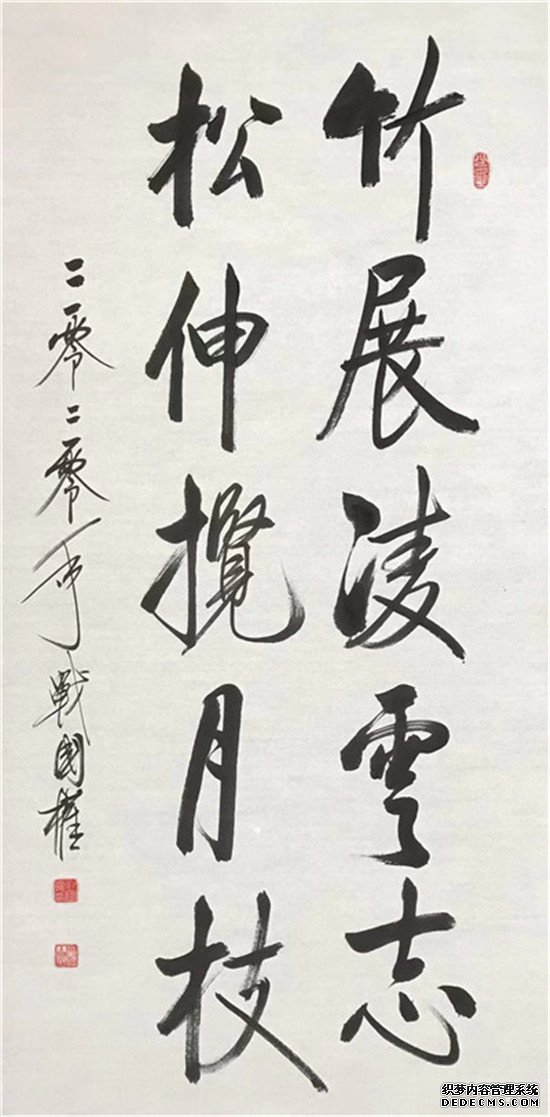 竹展凌雲志
松伸攬月枝
二零二零年戰國權
织梦内容管理系统
DEDECMS.COM